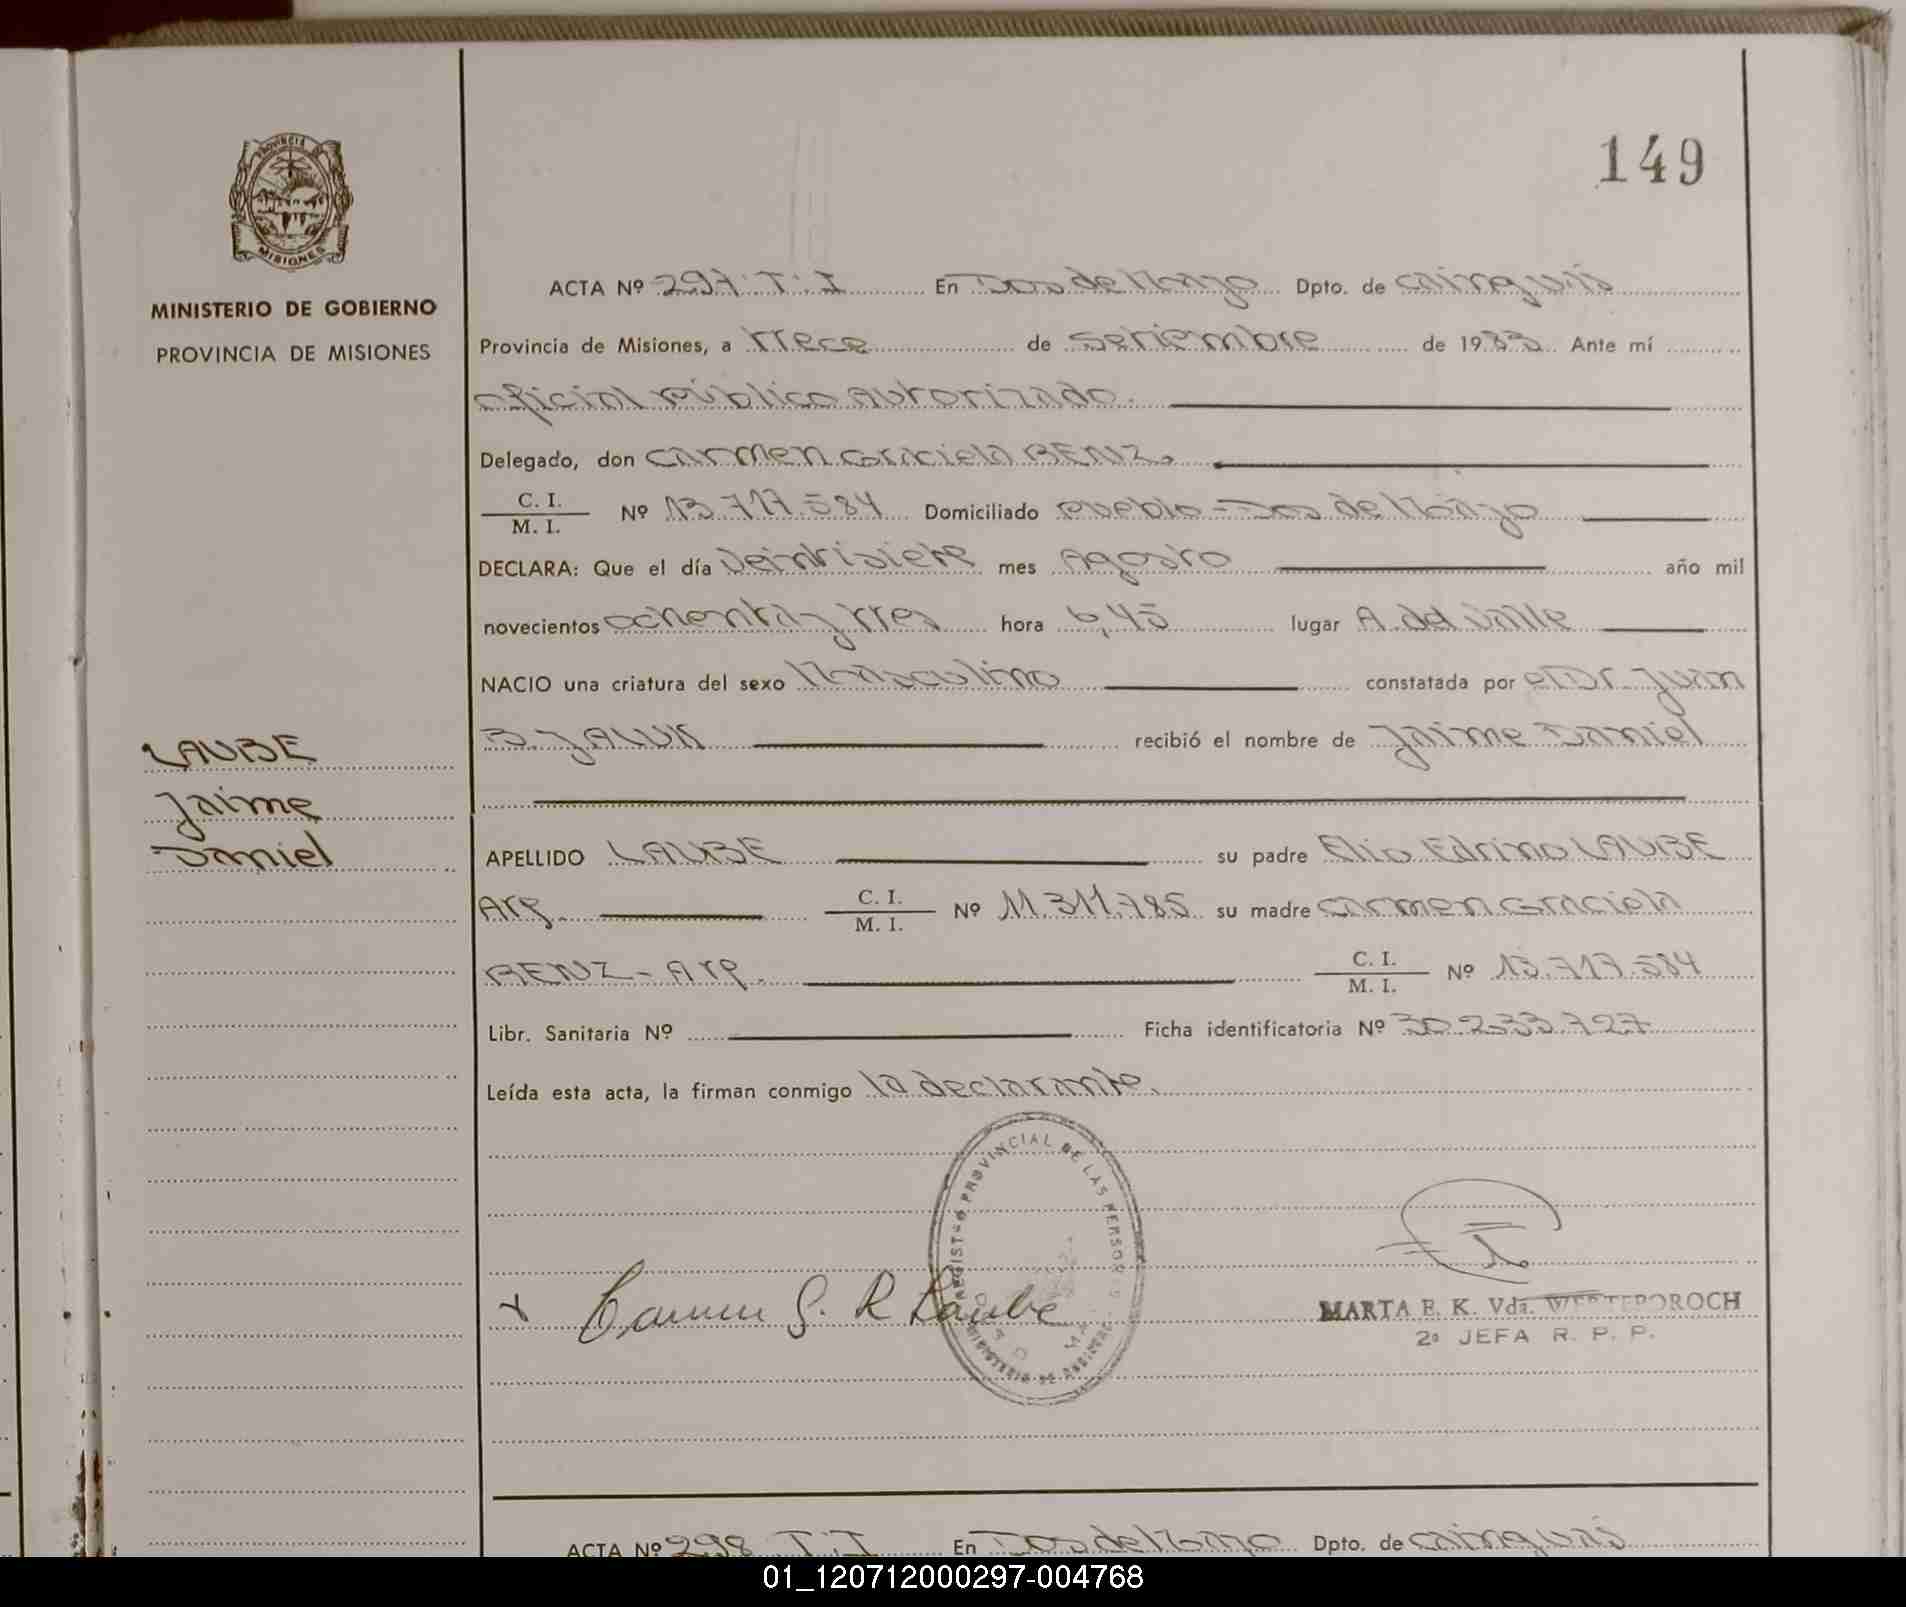 149
PROVINCIA
MISIONES
MINISTERIO DE GOBIERNO
PROVINCIA DE MISIONES
ACTA Nº 297. T: I En Dos de Mayo Dpto. de Cainguás
Provincia de Misiones, a trece de Setiembre de 1983. Ante mí
oficial público autorizado.
Delegado, don Carmen Graciela RENZ.
C. I. / M. I. Nº 13.717.584 Domiciliado pueblo - Dos de Mayo
DECLARA: Que el día Veintisiete mes Agosto año mil
novecientos ochenta y tres hora 6,45 lugar A. del Valle
NACIO una criatura del sexo Masculino constatada por el Dr. Juan
B. recibió el nombre de Jaime Daniel
LAUBE
Jaime
Daniel
APELLIDO LAUBE su padre Elio Edrino LAUBE
Arg. C. I. / M. I. Nº 11.311.785 su madre Carmen Graciela
RENZ - Arg. C. I. / M. I. Nº 13.717.584
Libr. Sanitaria Nº Ficha identificatoria Nº 30.233.727
Leída esta acta, la firman conmigo la declarante.
REGISTRO PROVINCIAL DE LAS PERSONAS
Carmen G. R Laube
MARTA E. K. Vda. WERTEPOROCH
2ª JEFA R. P. P.
ACTA Nº 298 T: I En Dos de Mayo Dpto. de Cainguás
01_120712000297-004768